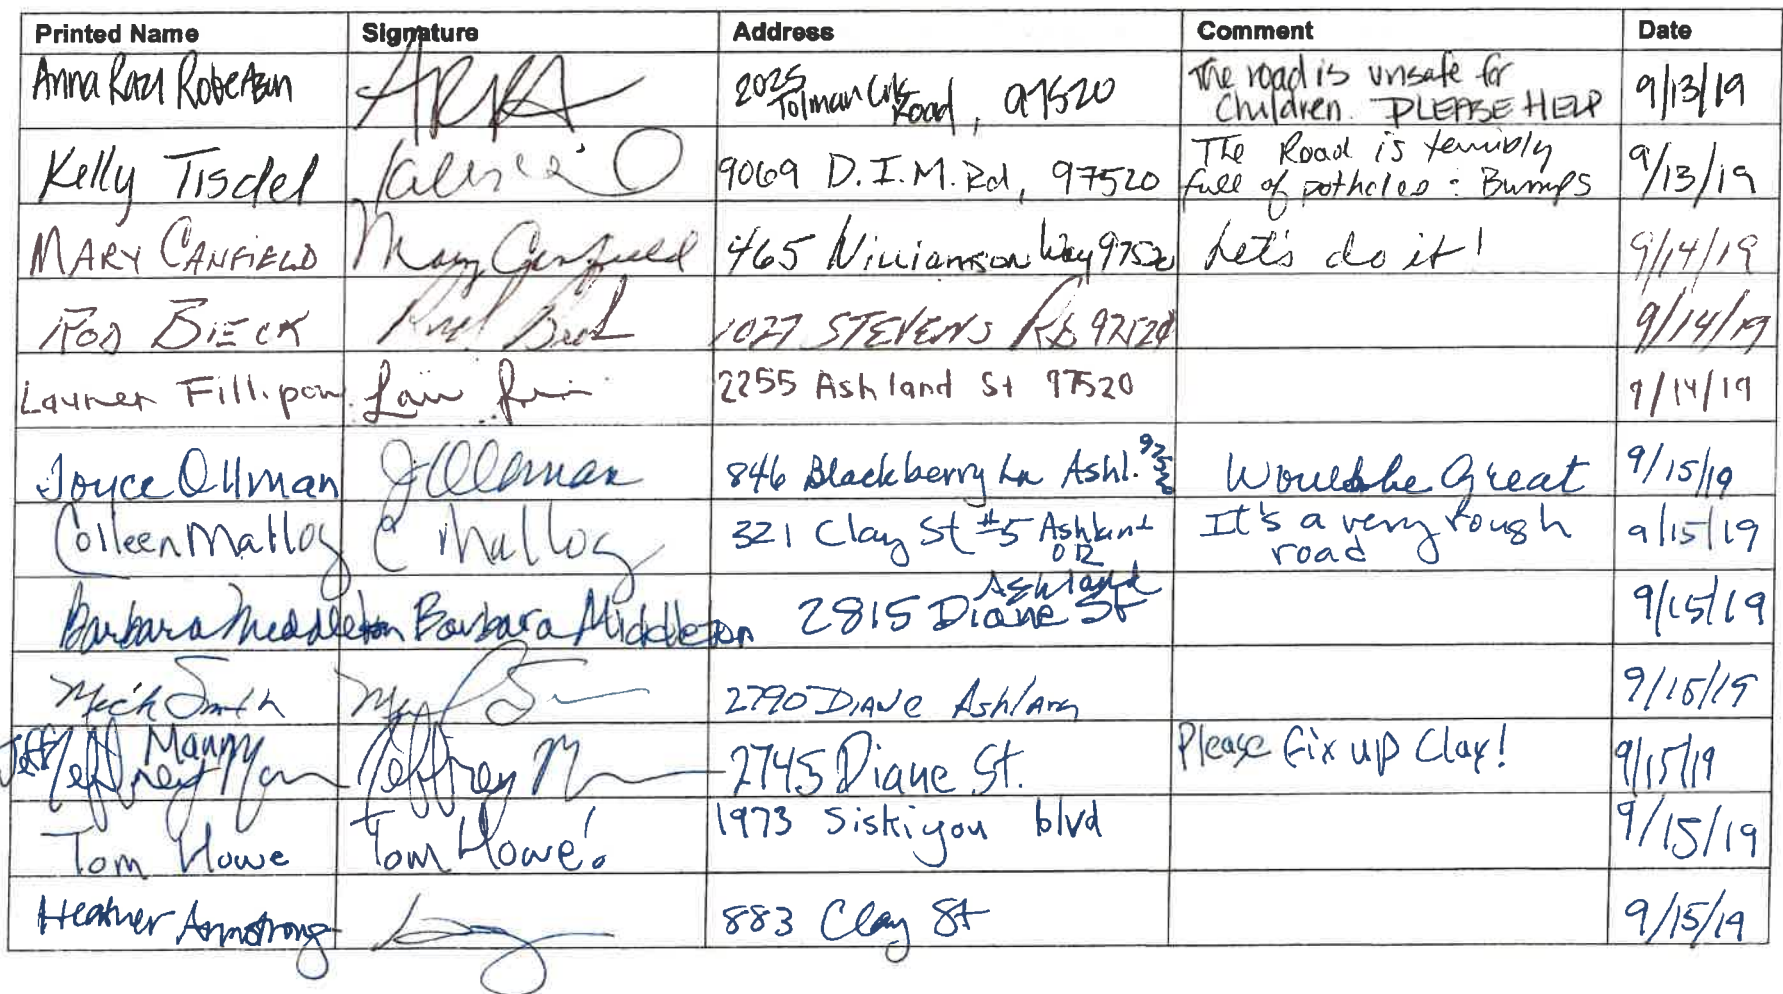 Printed Name Signature Address Comment Date
Anna Robertson ARRA 2025 Tolman Crk Road, 97520 The road is unsafe for children. PLEASE HELP 9/13/19
Kelly Tisdel 9069 D.I.M. Rd, 97520 The Road is terribly full of potholes : Bumps 9/13/19
MARY CANFIELD Mary Canfield 465 Williamson Way 97520 Let's do it! 9/14/19
ROD BIECK Rod Bieck 1027 STEVENS RD 97520 9/14/19
2255 Ashland St 97520 9/14/19
Joyce Ollman J Ollman 846 Blackberry Ln Ashl. 97520 Would be Great 9/15/19
Colleen Malloy C Malloy 321 Clay St #5 Ashland OR It's a very rough road 9/15/19
Barbara Middleton Barbara Middleton 2815 Diane St Ashland 9/15/19
Mick Smith 2790 DIANE Ashland 9/15/19
Jeff Manny Jeffrey Jeffrey M 2745 Diane St. Please fix up Clay! 9/15/19
Tom Howe Tom Howe! 1973 Siskiyou blvd 9/15/19
Heather Armstrong 883 Clay St 9/15/19